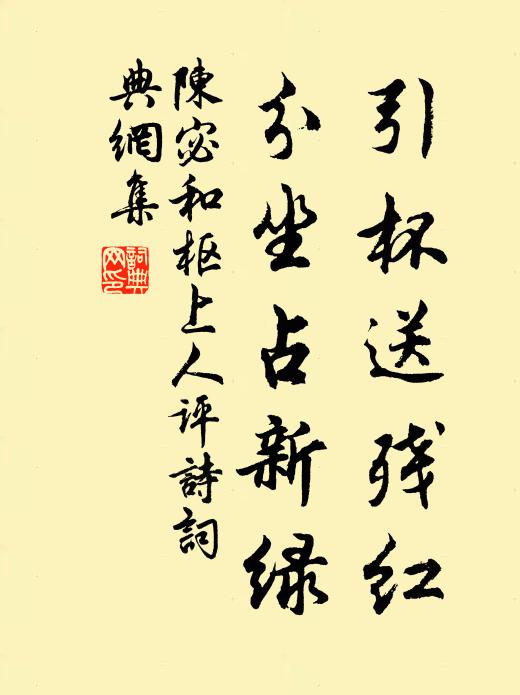 引杯送残红
分坐占新绿
陳宓和枢上人评詩詞
典網集
詞典
网印